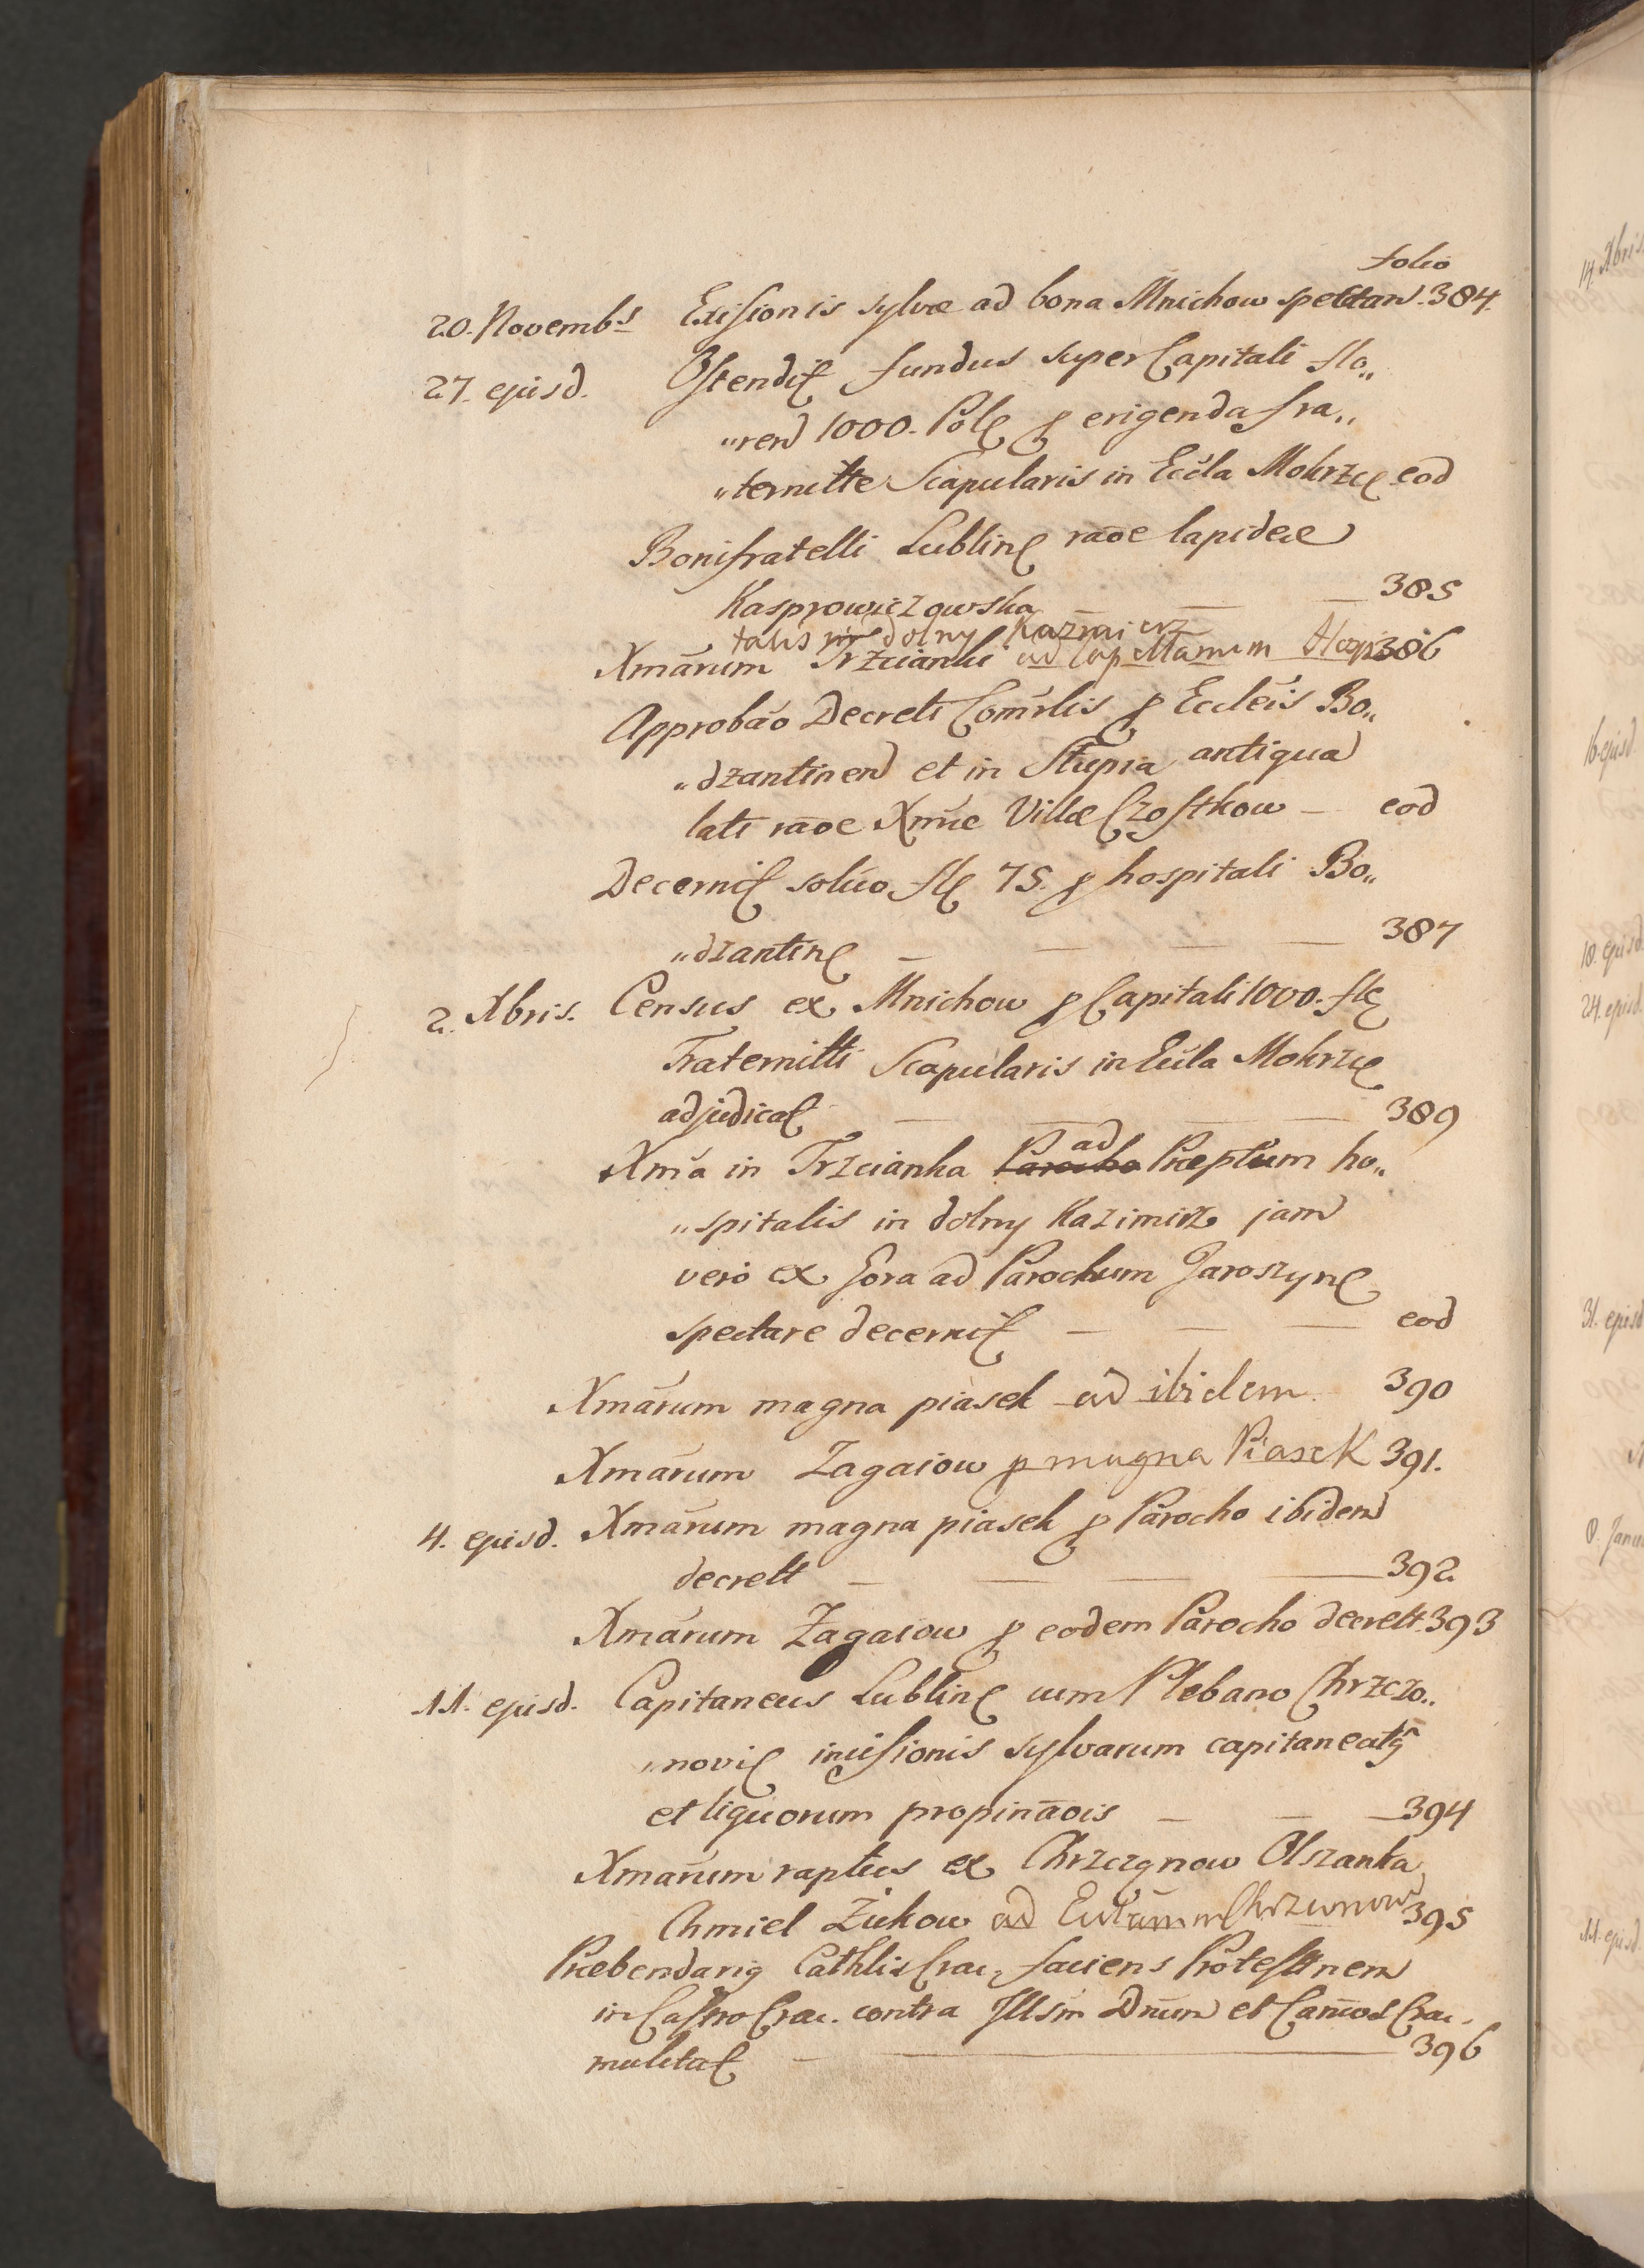 folio
20. Novembs Exisionis sylvæ ad bona Mnichow spectan. 384.
27. ejusd. Ostendit fundus super Capitali flo„
„ren 1000. Pol p erigenda fra„
„ternitte Scapularis in Eccla Mokrzc eod
Bonifratelli Lublin raõe lapideæ
Kasprowiczowska — — — 385
talis in dolny Kazmierz
Xmãrum Trzcianki ad Capellanum Hospi 386
Approbão Decreti Comrlis p Eccleis Bo„
„dzantinen et in Słupia antiqua
lati raõe Xmæ Villæ Czostkow — eod
Decernit solúo fl 75. p hospitali Bo„
„dzantin — — — — 387
2. Xbris. Census ex Mnichow p Capitali 1000. fl
Fraternitti Scapularis in Eccla Mokrzc
adjudicat — — — 389
ad
Xma in Trzcianka Parocho Præptum ho„
„spitalis in dolny Kazimirz jam
vero ex Gora ad Parochum Jaroszyn
spectare decernit — — — eod
Xmãrum magna piasek ad ibidem 390
Xmãrum Zagaiow p magna Piasek 391.
4. ejusd. Xmãrum magna piasek p Parocho ibidem
decrett — — — — 392
Xmãrum Zagaiow p eodem Parocho decrett. 393
11. ejusd. Capitaneus Lublin cum Plebano Chrzczo„
„novi incisionis sylvarum capitaneat
et liquorum propinãois — — — 394
Xmãrum raptus ex Chrzczonow Olszanka
Chmiel Żukow ad 395
Præbendari Cathlis Crac. faciens Protestnem
in Castro Crac. contra Illsm Dnum et Canicos Crac.
mulctat — — 396